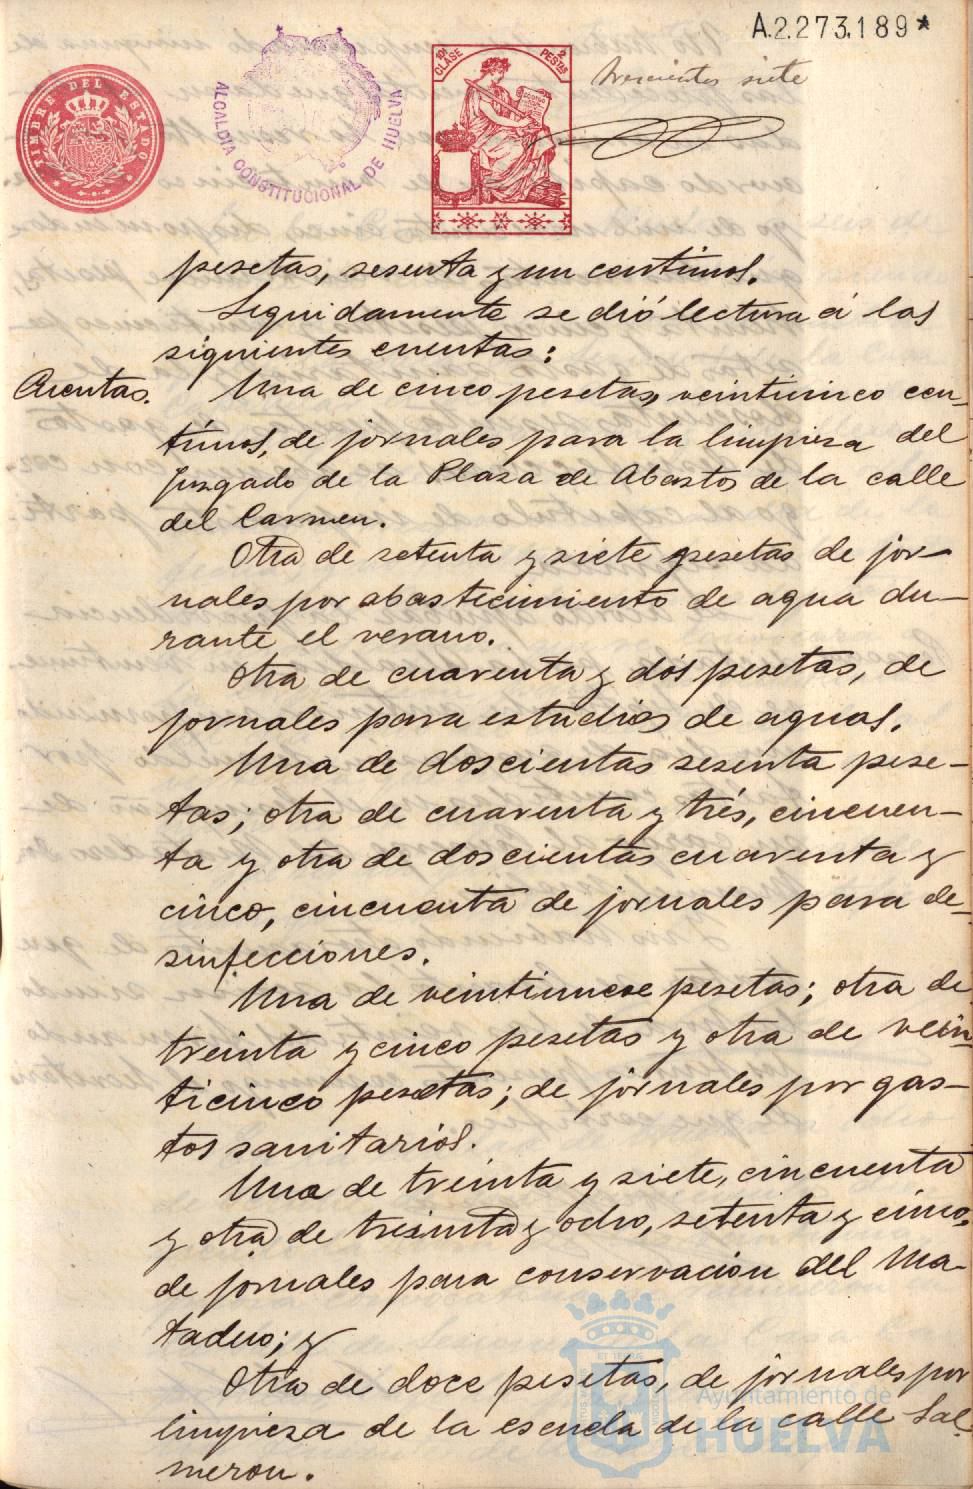 A.2.273.189*
TIMBRE DEL ESTADO
ALCALDIA CONSTITUCIONAL DE HUELVA
10ª CLASE 2 PESTAS
trescientos siete
pesetas, sesenta y un centimos.
Seguidamente se dió lectura á las
siguientes cuentas:
Cuentas.
Una de cinco pesetas, veinticinco cen-
tímos, de jornales para la limpieza del
Juzgado de la Plaza de Abastos de la calle
del Carmen.
Otra de setenta y siete pesetas de jor-
nales por abastecimiento de agua du-
rante el verano.
Otra de cuarenta y dós pesetas, de
jornales para estudios de aguas.
Una de doscientas sesenta pese-
tas; otra de cuarenta y trés, cincuen-
ta y otra de doscientas cuarenta y
cinco, cincuenta de jornales para de-
sinfecciones.
Una de veintinueve pesetas; otra de
treinta y cinco pesetas y otra de vein-
ticinco pesetas; de jornales por gas-
tos sanitarios.
Una de treinta y siete, cincuenta
y otra de treinta y ocho, setenta y cinco,
de jornales para conservacion del Ma-
tadero; y
Otra de doce pesetas, de jornales por
limpieza de la escuela de la calle Sal-
meron.
Ayuntamiento de
HUELVA